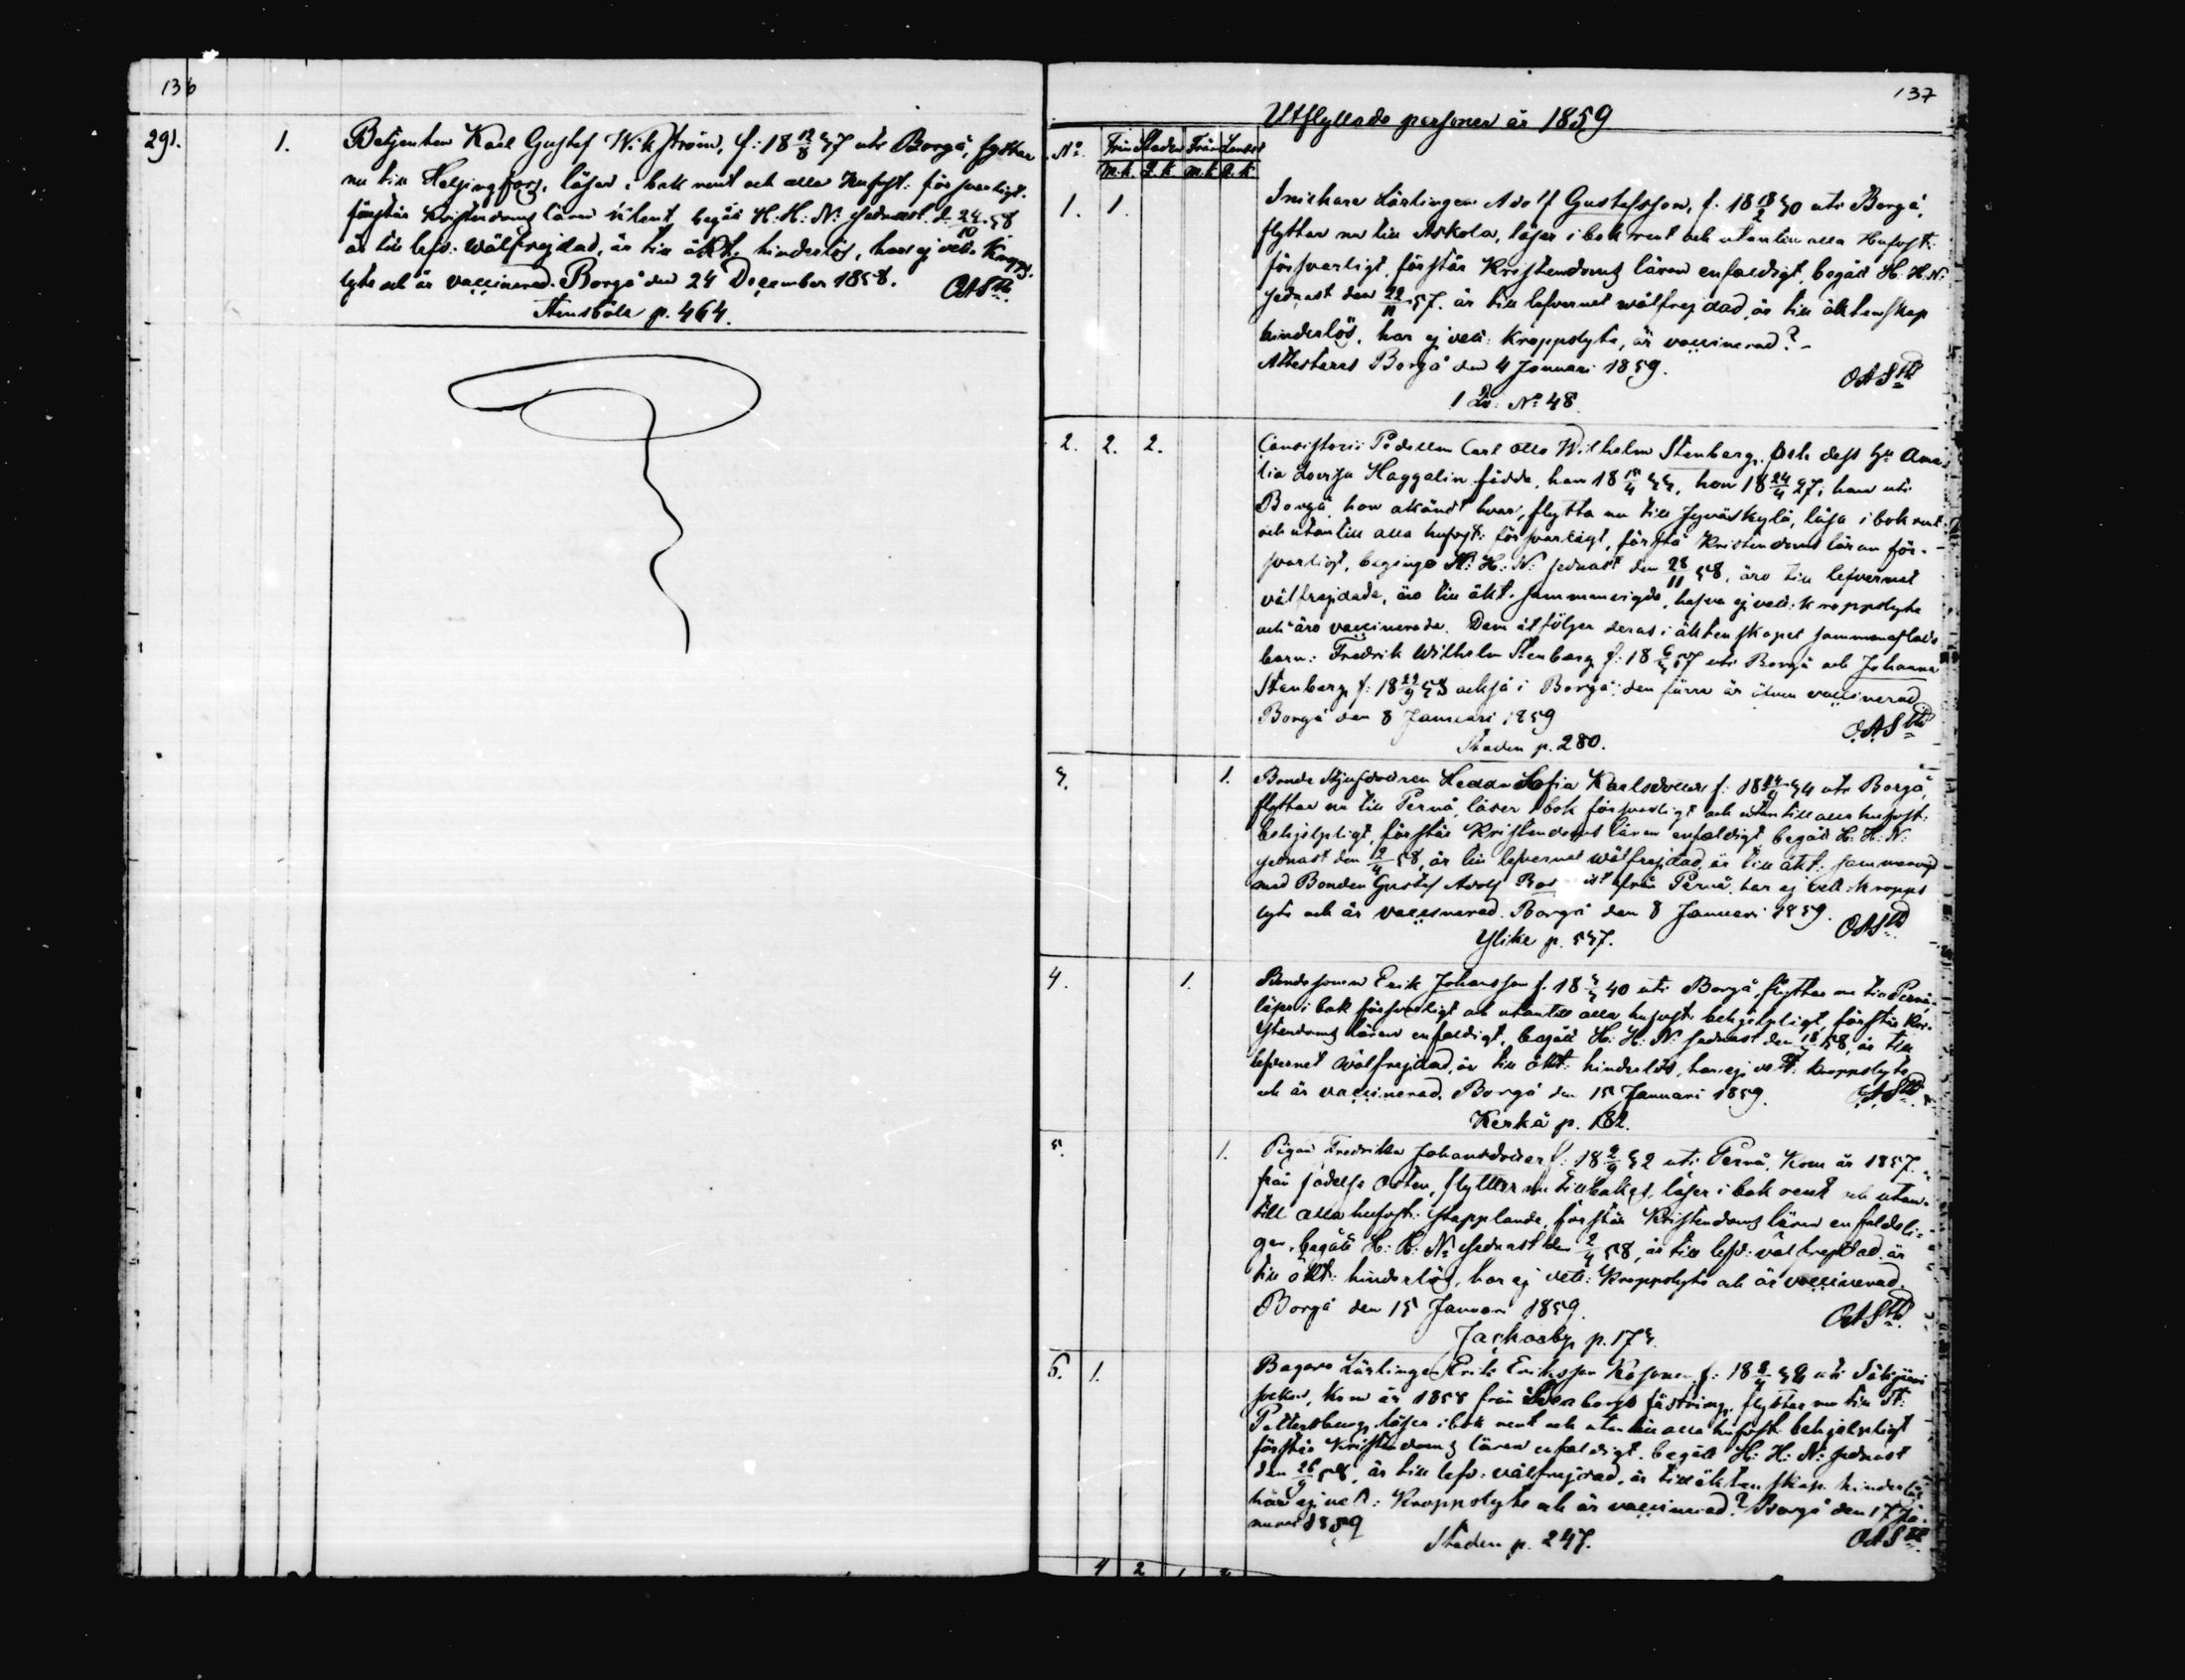 136
291. 1. Betjenten Karl Gustaf Wikström, f: 18 12/8 37 uti Borgå, flyttar
nu till Helsingfors, läser i bok rent och alla hufvst: försvarligt.
förstår Kristendoms läran klent, begått H: H: N: sednast d. 24/10 58
är till lefv: wälfrejdad, är till äkt. hinderlös, har ej vett. kropps
lyte och är vaccinerad. Borgå den 24 December 1858. OASth
p. 464.
137
Utflyttade personer år 1859
No. Från Staden Från Landet
m.k. q.k. m.k. q.k.
1. 1. Snickare Lärlingen Adolf Gustafsson, f. 18 18/2 40 uti Borgå,
flyttar nu till Askola, läser i bok rent och utantill alla Hufvst:
försvarligt, förstår Kristendoms läran enfaldigt, begått H. H. N:
sednast den 22/11 57. är till lefvernet wälfrejdad, är till äktenskap
hinderlös, har ej vett: kroppslyte, är vaccinerad? -
Attesteras Borgå den 4 Januari 1859. OASth
1 No 48.
2. 2. 2. Consistorii Pedellen Carl Otto Wilhelm Stenberg, och dess Hu Ama
lia Lovisa Haggelin födde, han 18 24/4 27, han uti
Borgå, hon okändt hvar, flytta nu till Jyväskylä, läsa i bok rent
och utantill alla hufvst: försvarligt, förstå Kristendoms läran för-
svarligt, begingo H: H: N: sednast den 28/11 58, äro till lefvernet
välfrejdade, äro till äkt. sammanvigde, hafva ej vett: kroppslyte
och äro vaccinerade. Dem åtföljer deras i äktenskapet sammanaflade
barn: Fredrik Wilhelm Stenberg f: 18 57 uti Borgå och Johanna
Stenberg f: 18 också i Borgå; den förre är äfven vaccinerad
Borgå den 8 Januari 1859 OASth
Staden p. 280.
3. 1. Bonde Styfdottren Hedda Sofia Karlsdotter f: 18 34 uti Borgå,
flyttar nu till Pernå, läser i bok försvarligt och utantill alla hufvst:
behjelpligt, förstår Kristendoms läran enfaldigt, begått H: H: N:
sednast den 2/4 58, är till lefvernet wälfrejdad, är till äkt: sammanvigd
med Bonden Gustaf Adolf från Pernå, har ej vett: kropps
lyte och är vaccinerad. Borgå den 8 Januari 1859. OASth
Ylike p. 537.
4. 1. Bondesonen Erik Johansson f. 18 40 uti Borgå, flyttar nu till Pernå
läser i bok försvarligt och utantill alla hufvst: behjelpligt, förstår Kri-
stendoms läran enfaldigt, begått H: H: N: sednast den 58, är till
lefvernet wälfrejdad, är till äkt: hinderlös, har ej vett: kroppslyte
och är vaccinerad. Borgå den 15 Januari 1859. OASth
Kerkå p. 182.
5. 1. Pigan Fredrika Johansdotter f: 18 2/9 32 uti Pernå, Kom år 1857
från sådelse Orten, flyttar nu tillbakas, läser i bok rent och utan-
till alla hufvst: stapplande, förstår Kristendoms läran enfaldeli-
gen, begått H: H: N: sednast den 2/4 58, är till lefv: välfrejdad, är
till äkt: hinderlös, har ej vett: Kroppslyte och är vaccinerad.
Borgå den 15 Januari 1859. OASth
Jackarby p. 173.
6. 1. Bagare Lärlingen Erik Eriksson Kosonen f: 18 39 uti Säkjärvi
socken, Kom år 1858 från Sveaborgs fästning, flyttar nu till St:
Pettersburg, läser i bok rent och utantill alla hufvst: behjelpligt
förstår Kristendoms läran enfaldigt. begått H: H: N: sednast
den 26/9 58, är till lefv: välfrejdad, är till äktenskap hinderlös
har ej vett: Kroppslyte och är vaccinerad? Borgå den 17 Ja
nuari 1859 OASth
Staden p. 247.
4 2 1 2